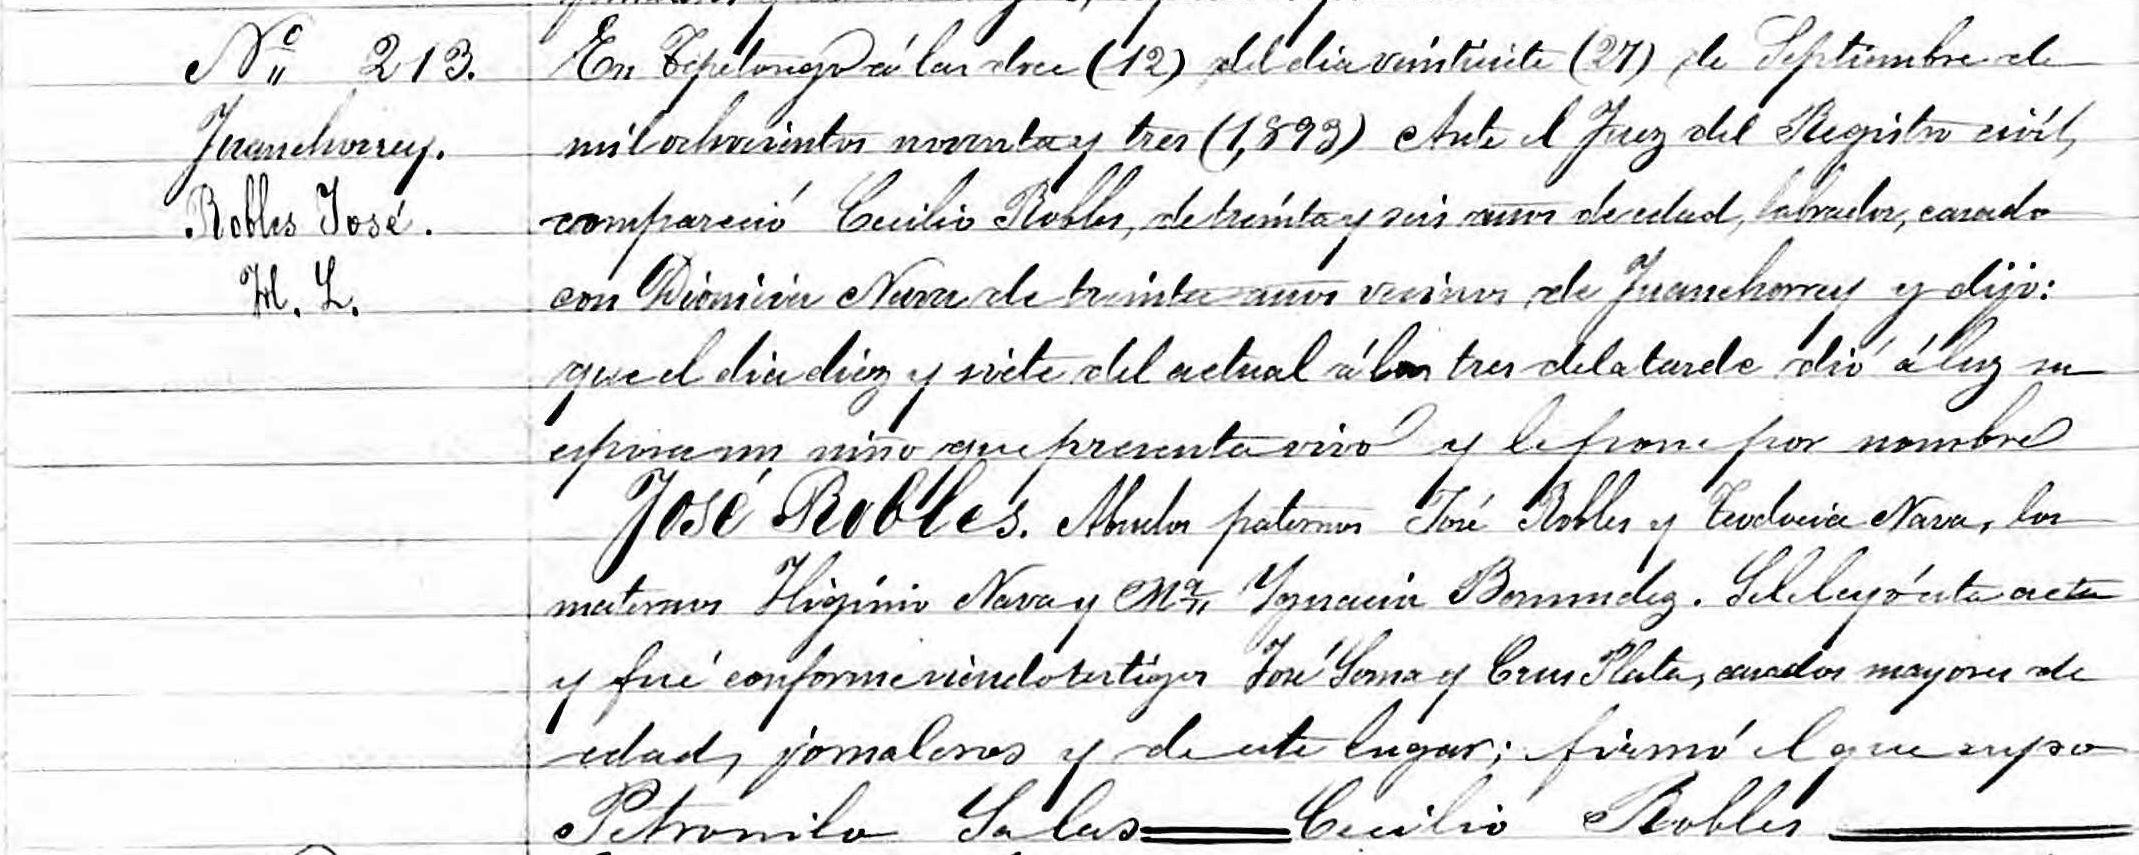 Nº 213.
Juanchorrey.
Robles José.
H. L.
En Tepetongo á las doce (12) del dia veintisiete (27) de Septiembre de
mil ochocientos noventa y tres (1,893) Ante el Juez del Registro civil,
compareció Cecilio Robles, de treinta y seis años de edad, labrador, casado
con Dionicia Nava de treinta años vecinos de Juanchorrey y dijo:
que el dia diez y siete del actual á las tres de la tarde dió á luz su
esposa un niño que presenta vivo y le pone por nombre
José Robles. Abuelos paternos José Robles y Teodocia Nava, los
maternos Higinio Nava y Mª Ygnacia Bermudez. Se le leyó esta acta
y fué conforme siendo testigos José Serna y Crus Plata, casados mayores de
edad, jornaleros y de este lugar; firmó el que supo
Petronilo Salas Cecilio Robles